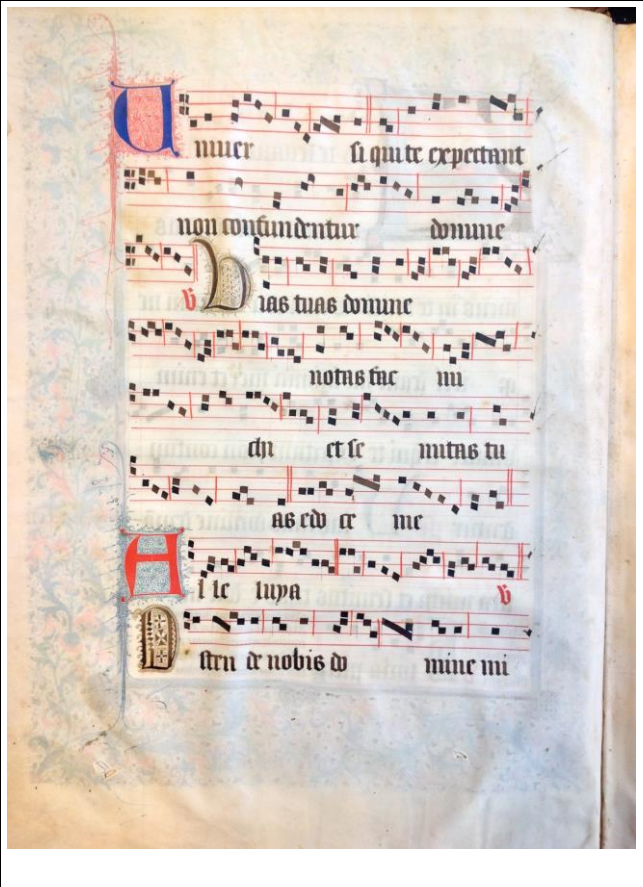 Univer si qui te expectant
non confundentur domine
V Vias tuas domine
notas fac mi
chi et se mitas tu
as edo ce me
Alleluya V
Osten de nobis do mine mi